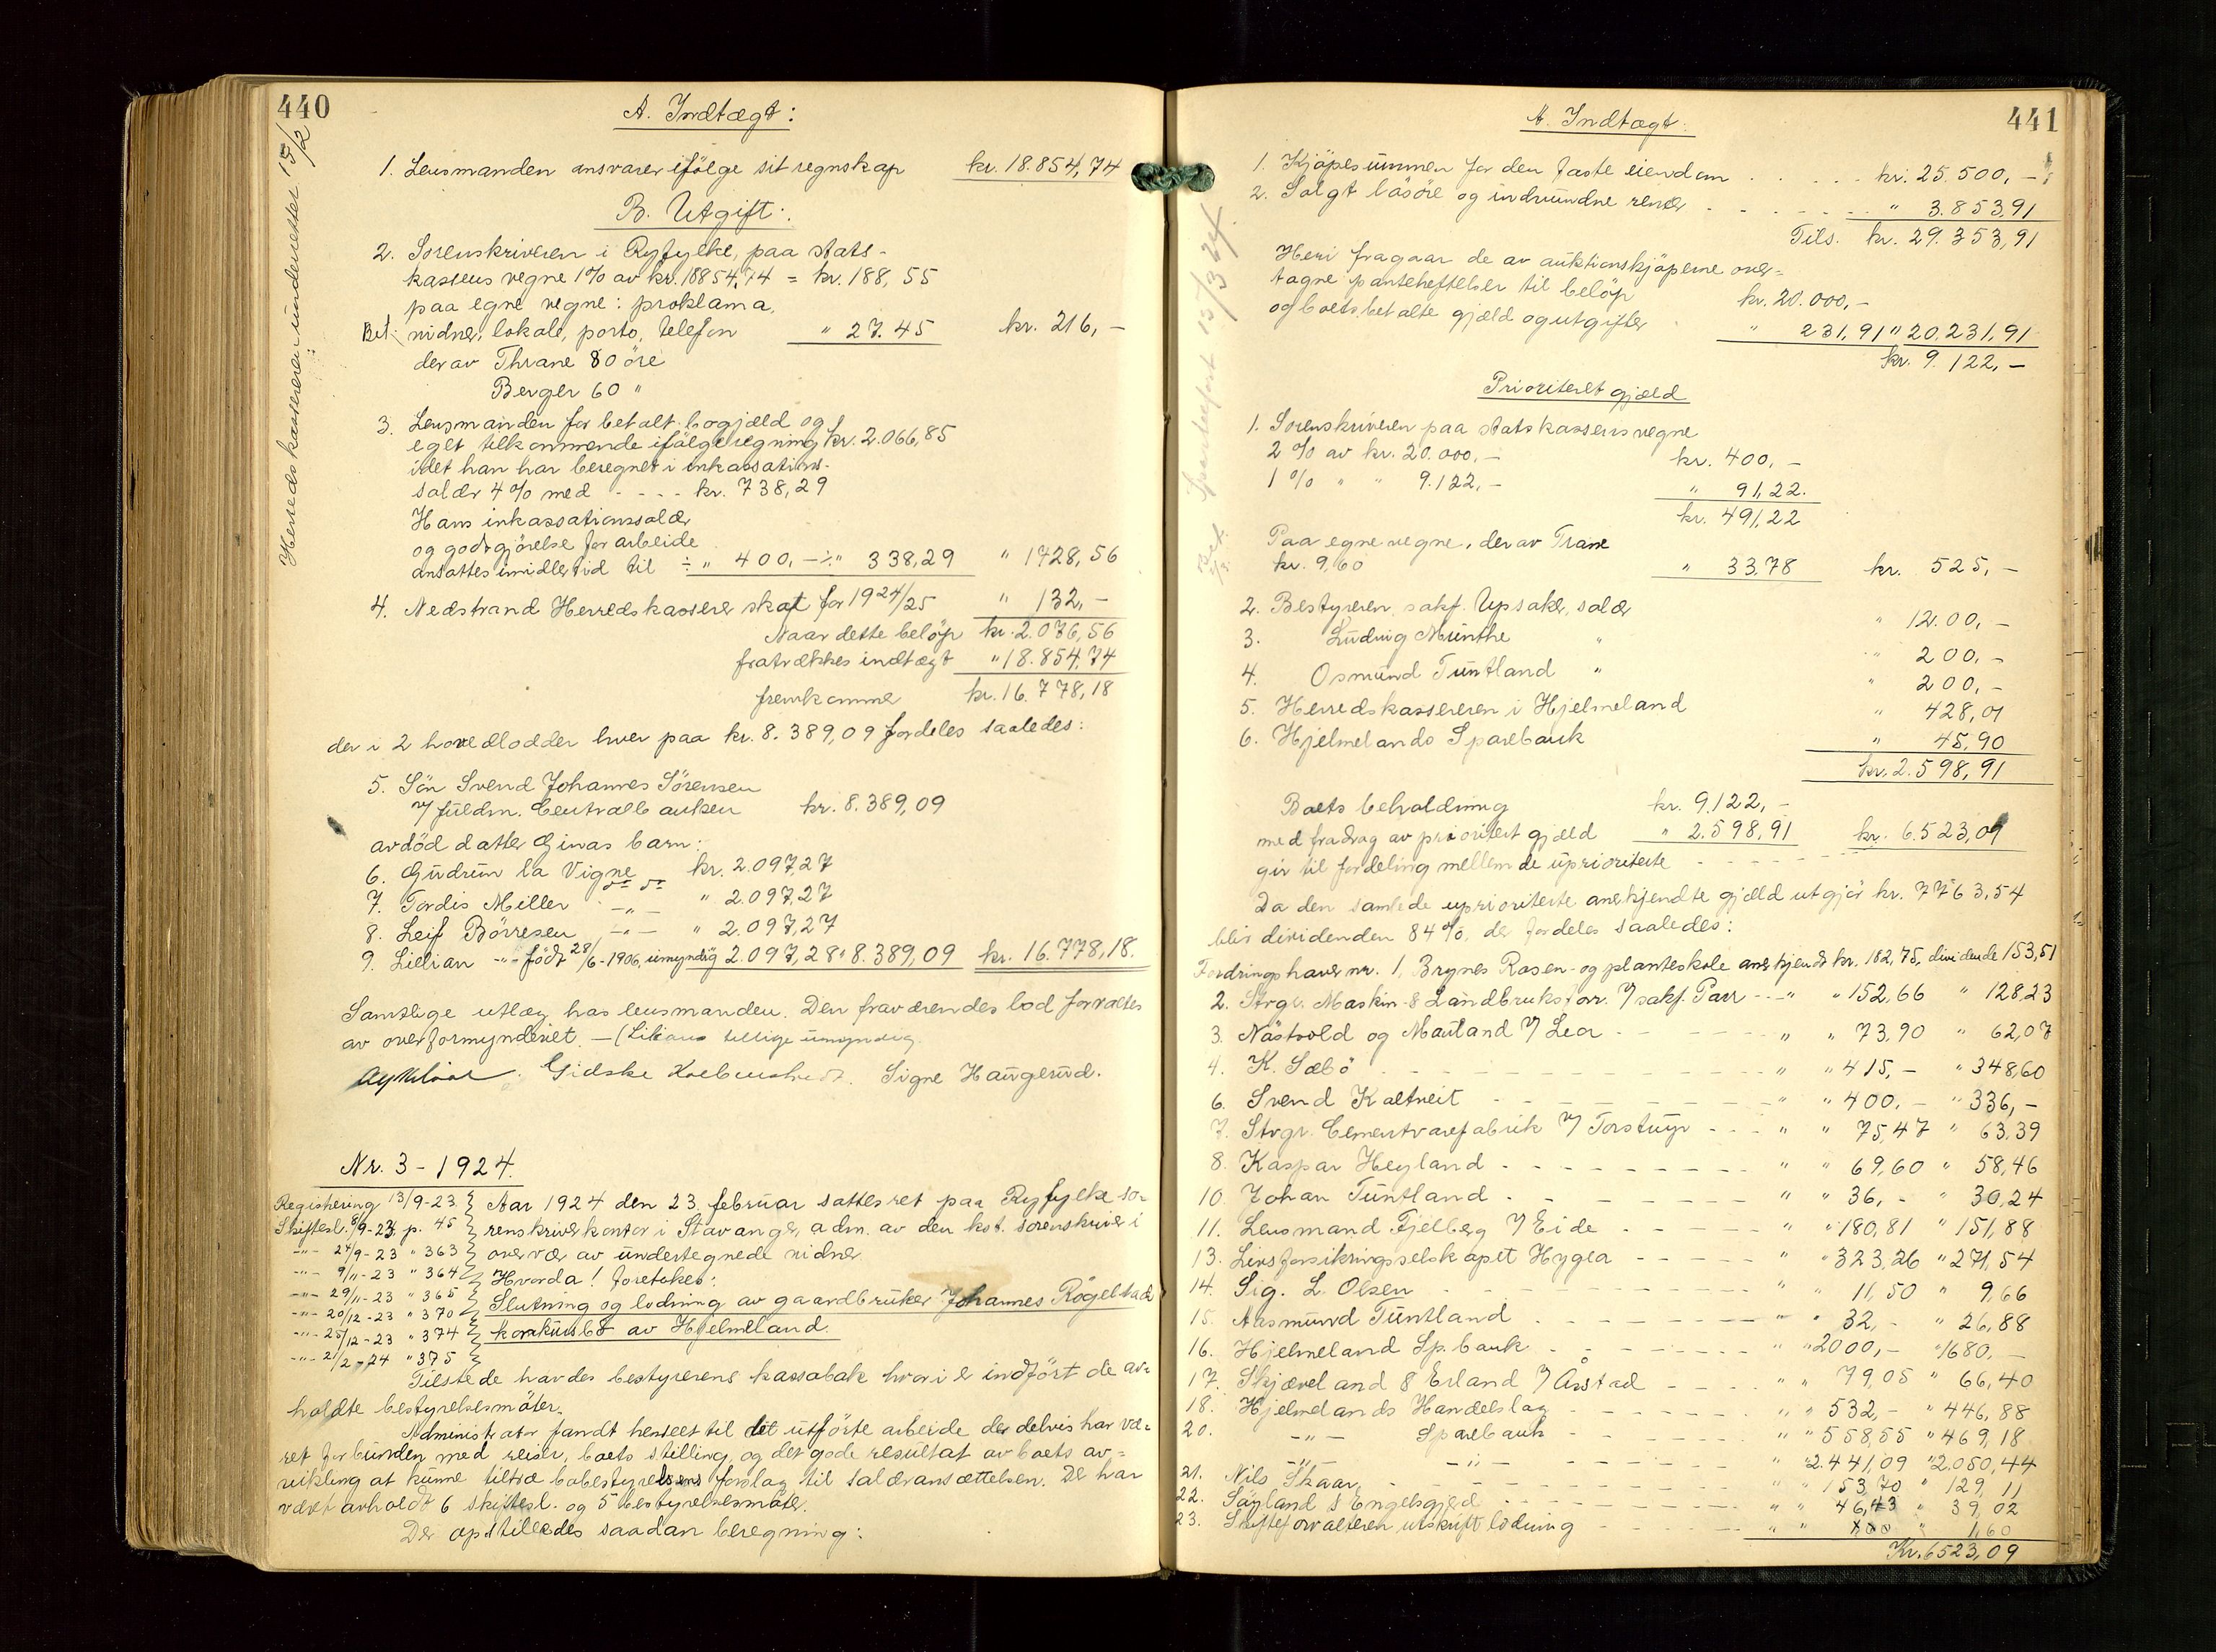 440
A. Indtægt:
Herredskassereren underrettet 13/2
1. Lensmanden ansvarer ifölge sit regnskap kr. 18.854,74
B. Utgift:
2. Sorenskriveren i Ryfylke, paa stats-
kassens vegne 1% av kr. 18854,74 = kr. 188,55
paa egne vegne: proklama,
Bet. vidner, lokale, porto, telefon " 27.45 kr. 216,-
derav Thrane 80 öre
Berger 60 "
3. Lensmanden for betalt bogjæld og
eget tilkommende ifölge regning kr. 2.066,85
idet han har beregnet i inkassations-
salær 4% med - - - - kr. 738,29
Hans inkassationssalær
og godtgjörelse for arbeide
ansattes imidlertid til ÷ " 400,- ÷ " 338,29 " 1728,56
4. Nedstrand Herredskasserer skat for 1924/25 " 132,-
Naar dette belöp kr. 2.076,56
fratrækkes indtægt " 18.854,74
fremkommer kr. 16.778,18
der i 2 hovedlodder hver paa kr. 8.389,09 fordeles saaledes:
5. Sön Svend Johannes Sörensen
v/ fuldm. Centralbanken kr. 8.389,09
avdöd datter Ginas barn:
6. Gudrun la Vigne kr. 2.097,27
7. Tordis Miller -"- " 2.097,27
8. Leif Börresen -"- " 2.097,27
9. Lillian -"- född 28/6-1906, umyndig 2.097,28 " 8.389,09 kr. 16.778,18.
Samtlige utlæg hos lensmanden. Den fraværendes lod forvaltes
av overformynderiet. - (Lilians tillige umyndig.
Gidske Signe Haugerud.
Nr. 3 - 1924.
Registrering 13/9-23
Skiftesl. 8/9-23, p. 45
-"- 24/9-23 " 363
-"- 9/11-23 " 364
-"- 29/11-23 " 365
-"- 20/12-23 " 370
-"- 25/12-23 " 374
-"- 21/2-24 " 375
Aar 1924 den 23. februar sattes ret paa Ryfylke so-
renskriverkontor i Stavanger, adm. av den kst. sorenskriver i
overvær av undertegnede vidner.
Hvorda! foretokes:
Slutning og lodning av gaardbruker Johannes Rögelstad
konkursbo av Hjelmeland.
Tilstede havdes bestyrerens kassabok hvori er indfört de av-
holdte bestyrelsesmöter.
Administrator fandt henseet til det utförte arbeide der delvis har væ-
ret forbunden med reiser, boets stilling, og det gode resultat av boets av-
vikling at kunne tiltræ bobestyrelsens forslag til salæransættelsen. Der har
været avholdt 6 skiftesl. og 5 bestyrelsesmöter.
Der opstilledes saadan beregning:
441
A. Indtægt:
1. Kjöpesummen for den faste eiendom - - - - - kr. 25.500,-
2. Solgt lösöre og indvundne renter - - - - - " 3.853,91
Tils. kr. 29.353,91
Heri fragaar de av auktionskjöperne over-
tagne panteheftelser til belöp kr. 20.000,-
og boets betalte gjæld og utgifter " 231,91 " 20.231,91
kr. 9.122,-
Prioritert gjæld
1. Sorenskriveren paa statskassens vegne
2% av kr. 20.000,- kr. 400,-
1% " " 9.122,- " 91,22.
kr. 491,22
Paa egne vegne, derav Trane
kr. 9,60 " 33,78 kr. 525,-
2. Bestyreren, sakf. Upsaker, salær " 1200,-
3. Ludvig Munthe " " 200,-
4. Osmund Tuntland " " 200,-
5. Herredskassereren i Hjelmeland " 428,01
6. Hjelmelands Sparebank " 45,90
kr. 2.598,91
Boets beholdning kr. 9.122,-
med fradrag av prioritert gjæld " 2.598,91 kr. 6.523,09
gir til fordeling mellem de uprioriterte - - - - - -
Da den samlede uprioriterte anerkjendte gjæld utgjör kr. 7763,54
blir dividenden 84%, der fordeles saaledes:
Fordringshaver nr. 1, Brynes Rosen- og planteskole anerkjendt kr. 182,75, dividende 153,51
2. Stvgr. Maskin & Landbruksforr. v/ sakf. Parr - - " " 152,66 " 128,23
3. Nästvold og Mauland v/ Lea - - - - " " 73,90 " 62,07
4. K. Sæbö - - - - " " 415,- " 348,60
6. Svend Kaltveit - - - - " " 400,- " 336,-
7. Stvgr. Cementvarefabrik v/ Torstrup - - - " " 75,47 " 63,39
8. Kaspar Heyland - - - - " " 69,60 " 58,46
10. Johan Tuntland - - - - " " 36,- " 30,24
11. Lensmand Fjelberg v/ Eide - - - - " " 180,81 " 151,88
13. Livsforsikringsselskapet Hygea - - - - " " 323,26 " 271,54
14. Sig. L. Olsen - - - - " 11,50 " 9,66
15. Aasmund Tuntland - - - - " " 32,- " 26,88
16. Hjelmeland Sp.bank - - - - " " 2000,- " 1680,-
17. Skjæveland & Erland v/ Årstad - - - - " " 79,05 " 66,40
18. Hjelmelands Handelslag - - - - " " 532,- " 446,88
20. -"- Sparebank - - - - " " 558,55 " 469,18
-"- -"- - - - - " 2.441,09 " 2.050,44
21. Nils Skaar - - - - " " 153,70 " 129,11
22. Söyland & Engelsgjerd - - - - " " 46,43 " 39,02
23. Skifteforvalteren utskrift lodning - - - - " " " 1,60
Kr. 6523,09